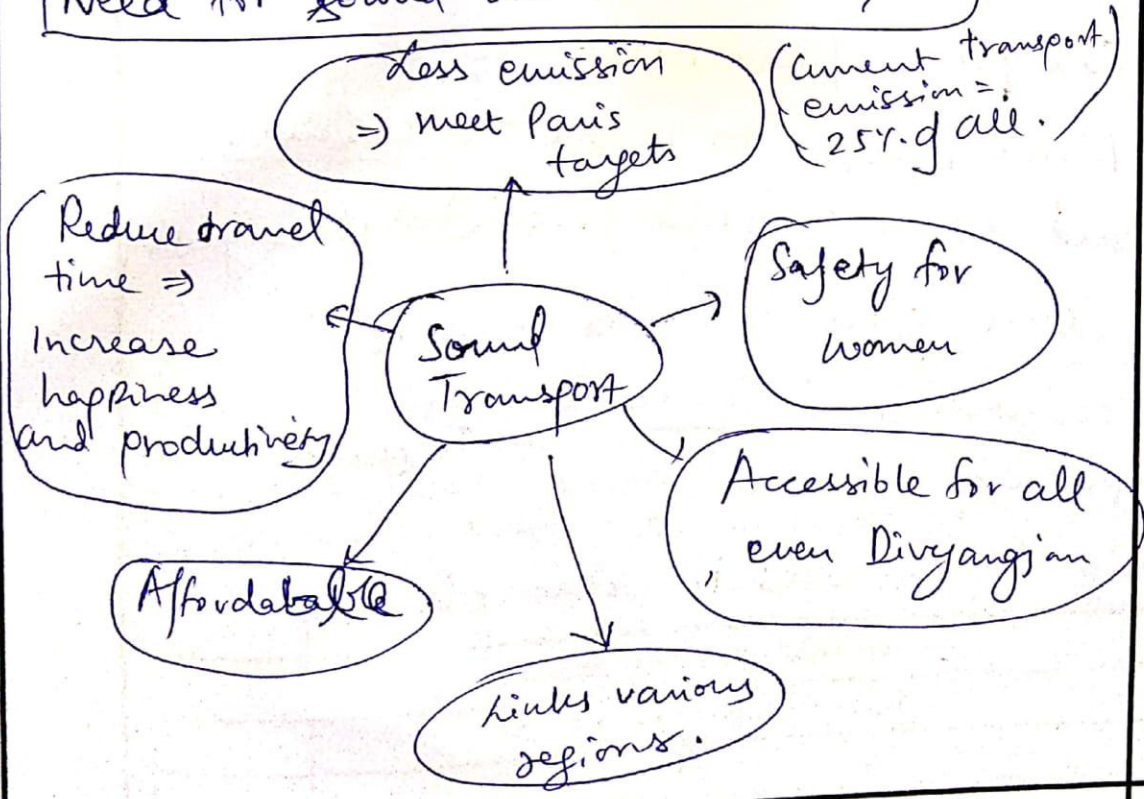 Need for sound
Less emission
⇒ meet Paris
targets
(Current transport
emission =
25% of all.)
Reduce travel
time ⇒
Increase
happiness
and productivity
Sound
Transport
Safety for
women
Accessible for all
, even Divyangjan
Links various
regions.